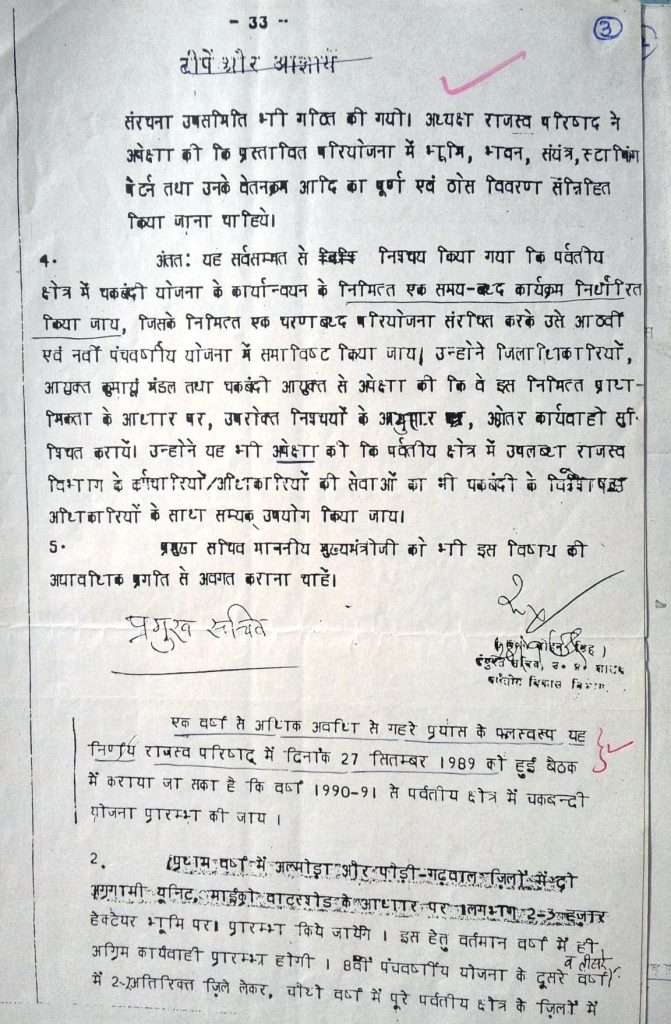 - 33 --
3
टीपें और आज्ञायें
संरचना उपसमिति भी गठित की गयी। अध्यक्ष राजस्व परिषद ने
अपेक्षा की कि प्रस्तावित परियोजना में भूमि, भवन, संयंत्र, स्टाफिंग
पैटर्न तथा उनके वेतनक्रम आदि का पूर्ण एवं ठोस विवरण सन्निहित
किया जाना चाहिये।
4. अंततः यह सर्वसम्मत से निश्चय किया गया कि पर्वतीय
क्षेत्र में चकबंदी योजना के कार्यान्वयन के निमित्त एक समय-बध्द कार्यक्रम निर्धारित
किया जाय, जिसके निमित्त एक चरणबध्द परियोजना संरचित करके उसे आठवीं
एवं नवीं पंचवर्षीय योजना में समाविष्ट किया जाय। उन्होंने जिलाधिकारियों,
आयुक्त कुमायूं मंडल तथा चकबंदी आयुक्त से अपेक्षा की कि वे इस निमित्त प्राथ-
मिकता के आधार पर, उपरोक्त निश्चयों के अनुसार अग्रेतर कार्यवाही सुनि-
श्चित करायें। उन्होंने यह भी अपेक्षा की कि पर्वतीय क्षेत्र में उपलब्ध राजस्व
विभाग के कर्मचारियों/अधिकारियों की सेवाओं का भी चकबंदी के
अधिकारियों के साथ सम्यक् उपयोग किया जाय।
5. प्रमुख सचिव माननीय मुख्यमंत्रीजी को भी इस विषय की
अद्यावधिक प्रगति से अवगत कराना चाहें।
प्रमुख सचिव
संयुक्त सचिव, उ. प्र. शासन
पर्वतीय विकास विभाग
एक वर्ष से अधिक अवधि से गहरे प्रयास के फलस्वरूप यह
निर्णय राजस्व परिषद् में दिनांक 27 सितम्बर 1989 को हुई बैठक
में कराया जा सका है कि वर्ष 1990-91 से पर्वतीय क्षेत्र में चकबन्दी
योजना प्रारम्भ की जाय ।
2. प्रथम वर्ष में अल्मोड़ा और पौड़ी-गढ़वाल ज़िलों में दो
अग्रगामी यूनिट, माईक्रो वाटरशेड के आधार पर लगभग 2-3 हजार
हेक्टेयर भूमि पर। प्रारम्भ किये जायेंगे । इस हेतु वर्तमान वर्ष में ही
अग्रिम कार्यवाही प्रारम्भ होगी । 8वीं पंचवर्षीय योजना के दूसरे व तीसरे वर्षों
में 2-2 अतिरिक्त ज़िले लेकर, चौथे वर्ष में पूरे पर्वतीय क्षेत्र के ज़िलों में